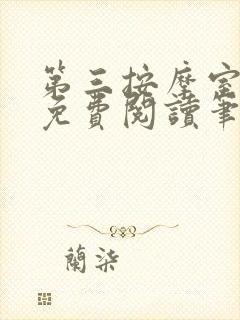 第三按摩室
免費閱讀筆
蘭柒